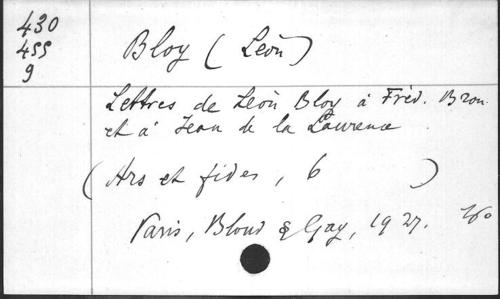 430
455
9
Bloy (Léon)
Lettres de Léon Bloy à Fréd. Brou
et à Jean de la Laurence
(Ars et fides, 6)
Paris, Bloud & Gay, 1927.